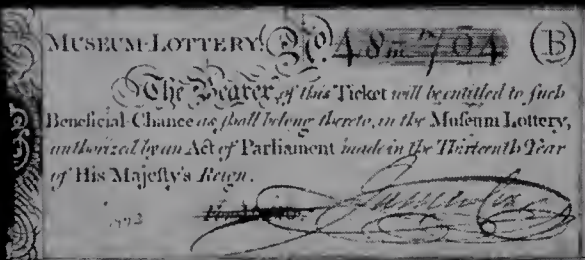 MUSEUM-LOTTERY. No. 48m 704 (B)
The Bearer of this Ticket will be entitled to such
Beneficial Chance as shall belong thereto, in the Museum Lottery,
authorized by an Act of Parliament made in the Thirteenth Year
of His Majesty's Reign.